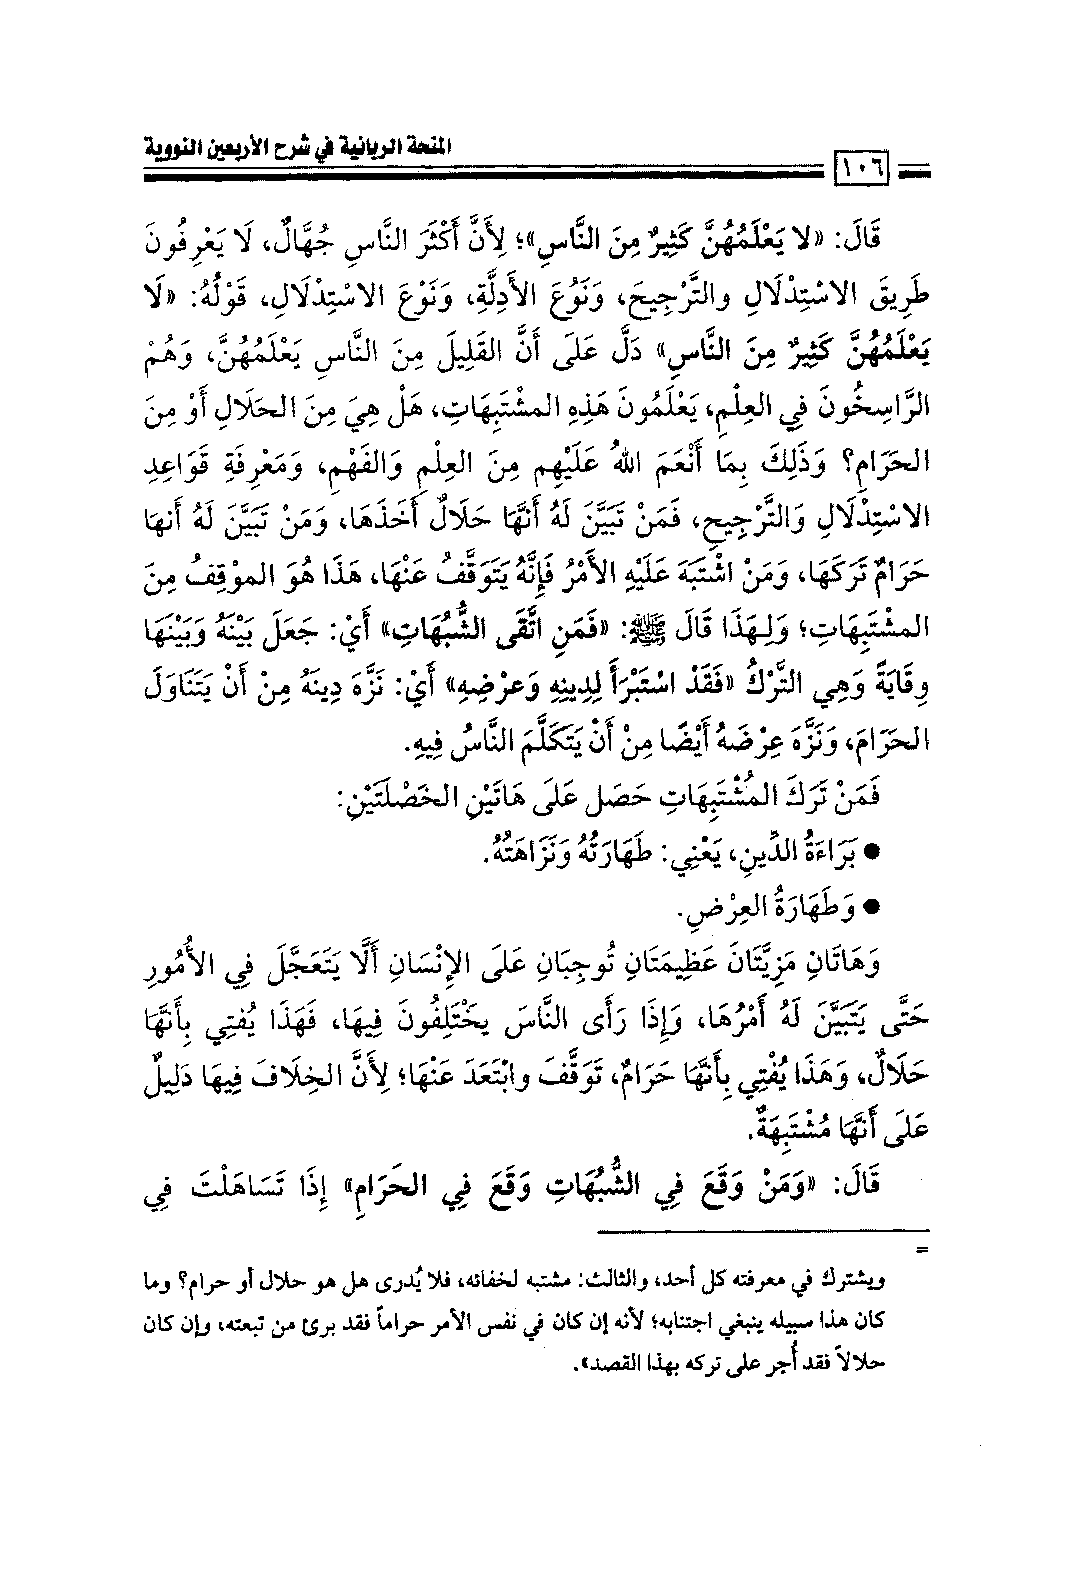 المنحة الربانية في شرح الأربعين النووية
١٠٦
قَالَ: «لا يَعْلَمُهُنَّ كَثِيرٌ مِنَ النَّاسِ»؛ لِأَنَّ أَكْثَرَ النَّاسِ جُهَّالٌ، لَا يَعْرِفُونَ
طَرِيقَ الاسْتِدْلَالِ والتَّرْجِيحَ، وَنُوعَ الأَدِلَّةِ، وَنَوْعَ الاسْتِدْلَالِ، قَوْلُهُ: «لَا
يَعْلَمُهُنَّ كَثِيرٌ مِنَ النَّاسِ» دَلَّ عَلَى أَنَّ القَلِيلَ مِنَ النَّاسِ يَعْلَمُهُنَّ، وَهُمْ
الرَّاسِخُونَ فِي العِلْمِ، يَعْلَمُونَ هَذِهِ المشْتَبِهَاتِ، هَلْ هِيَ مِنَ الحَلَالِ أَوْ مِنَ
الحَرَامِ؟ وَذَلِكَ بِمَا أَنْعَمَ اللهُ عَلَيْهِم مِنَ العِلْمِ وَالفَهْمِ، وَمَعْرِفَةِ قَوَاعِدِ
الاسْتِدْلَالِ وَالتَّرْجِيحِ، فَمَنْ تَبَيَّنَ لَهُ أَنَّهَا حَلَالٌ أَخَذَهَا، وَمَنْ تَبَيَّنَ لَهُ أَنهَا
حَرَامٌ تَرَكَهَا، وَمَنْ اشْتَبَهَ عَلَيْهِ الأَمْرُ فَإِنَّهُ يَتَوَقَّفُ عَنْهَا، هَذَا هُوَ الموْقِفُ مِنَ
المشْتَبِهَاتِ؛ وَلِهَذَا قَالَ ﷺ: «فَمَنِ اتَّقَى الشُّبُهَاتِ» أَيْ: جَعَلَ بَيْنَهُ وَبَيْنَهَا
وِقَايَةً وَهِي التَّرْكُ «فَقَدْ اسْتَبْرَأَ لِدِينِهِ وَعرْضِهِ» أَيْ: نَزَّهَ دِينَهُ مِنْ أَنْ يَتَنَاوَلَ
الحَرَامَ، وَنَزَّهَ عِرْضَهُ أَيْضًا مِنْ أَنْ يَتَكَلَّمَ النَّاسُ فِيهِ.
فَمَنْ تَرَكَ المُشْتَبِهَاتِ حَصَل عَلَى هَاتَيْنِ الخَصْلَتَيْنِ:
● بَرَاءَةُ الدِّينِ، يَعْنِي: طَهَارَتُهُ وَنَزَاهَتُهُ.
● وَطَهَارَةُ العِرْضِ.
وَهَاتَانِ مَزِيَّتَانَ عَظِيمَتَانِ تُوجِبَانِ عَلَى الإِنْسَانِ أَلَّا يَتَعَجَّلَ فِي الأُمُورِ
حَتَّى يَتَبَيَّنَ لَهُ أَمْرُهَا، وَإِذَا رَأَى النَّاسَ يَخْتَلِفُونَ فِيهَا، فَهَذَا يُفْتِي بِأَنَّهَا
حَلَالٌ، وَهَذَا يُفْتِي بِأَنَّهَا حَرَامٌ، تَوَقَّفَ وابْتَعَدَ عَنْهَا؛ لِأَنَّ الخِلَافَ فِيهَا دَلِيلٌ
عَلَى أَنَّهَا مُشْتَبِهَةٌ.
قَالَ: «وَمَنْ وَقَعَ فِي الشُّبُهَاتِ وَقَعَ فِي الحَرَامِ» إِذَا تَسَاهَلْتَ فِي
=
ويشترك في معرفته كل أحد، والثالث: مشتبه لخفائه، فلا يُدرى هل هو حلال أو حرام؟ وما
كان هذا سبيله ينبغي اجتنابه؛ لأنه إن كان في نفس الأمر حراماً فقد برئ من تبعته، وإن كان
حلالاً فقد أُجر على تركه بهذا القصد».